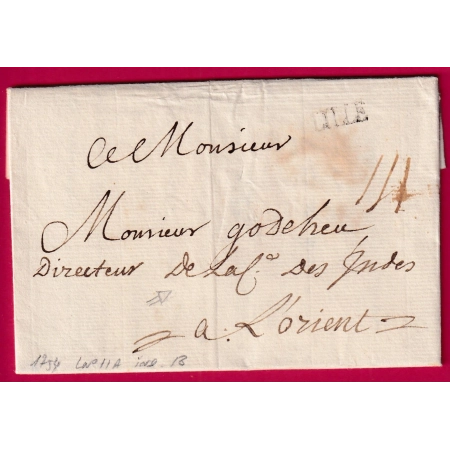 LILLE
A Monsieur
Monsieur godeheu
Directeur De La C.ᵉ Des Indes
a L'orient
1754 Lac 11A ind 13